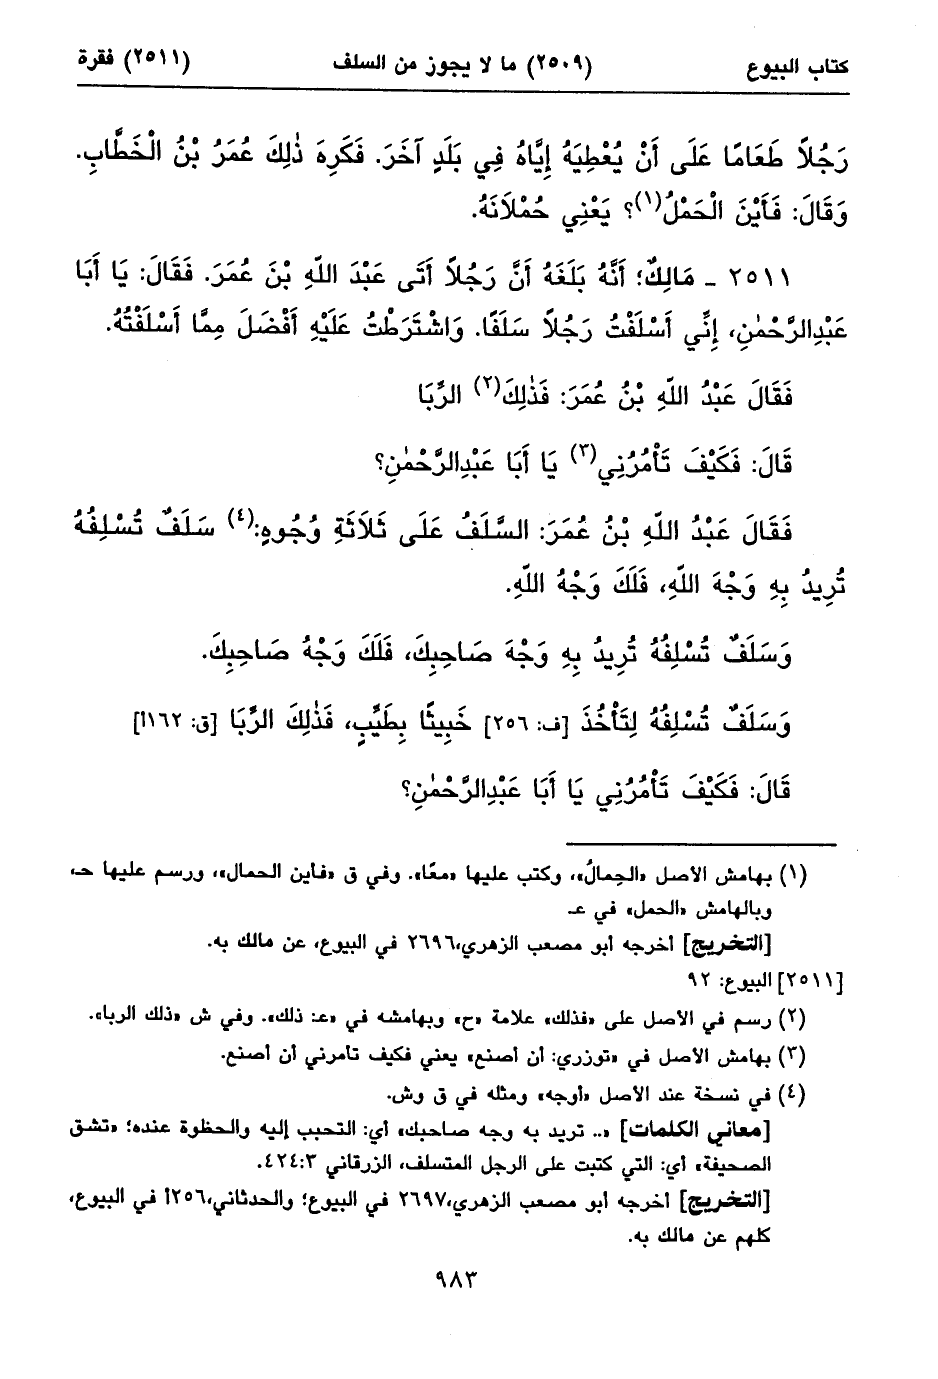 كتاب البيوع (٢٥٠٩) ما لا يجوز من السلف (٢٥١١) فقرة
رَجُلاً طَعَامًا عَلَى أَنْ يُعْطِيَهُ إِيَّاهُ فِي بَلَدٍ آخَرَ. فَكَرِهَ ذٰلِكَ عُمَرُ بْنُ الْخَطَّابِ.
وَقَالَ: فَأَيْنَ الْحَمْلُ(١)؟ يَعْنِي حُمْلاَنَهُ.
٢٥١١ - مَالِكٌ؛ أَنَّهُ بَلَغَهُ أَنَّ رَجُلاً أَتَى عَبْدَ اللّهِ بْنَ عُمَرَ. فَقَالَ: يَا أَبَا
عَبْدِالرَّحْمٰنِ، إِنِّي أَسْلَفْتُ رَجُلاً سَلَفًا. وَاشْتَرَطْتُ عَلَيْهِ أَفْضَلَ مِمَّا أَسْلَفْتُهُ.
فَقَالَ عَبْدُ اللّهِ بْنُ عُمَرَ: فَذٰلِكَ(٢) الرِّبَا
قَالَ: فَكَيْفَ تَأْمُرُنِي(٣) يَا أَبَا عَبْدِالرَّحْمٰنِ؟
فَقَالَ عَبْدُ اللّهِ بْنُ عُمَرَ: السَّلَفُ عَلَى ثَلاَثَةِ وُجُوهٍ:(٤) سَلَفٌ تُسْلِفُهُ
تُرِيدُ بِهِ وَجْهَ اللّهِ، فَلَكَ وَجْهُ اللّهِ.
وَسَلَفٌ تُسْلِفُهُ تُرِيدُ بِهِ وَجْهَ صَاحِبِكَ، فَلَكَ وَجْهُ صَاحِبِكَ.
وَسَلَفٌ تُسْلِفُهُ لِتَأْخُذَ [ف: ٢٥٦] خَبِيثًا بِطَيِّبٍ، فَذٰلِكَ الرِّبَا [ق: ١٦٢أ]
قَالَ: فَكَيْفَ تَأْمُرُنِي يَا أَبَا عَبْدِالرَّحْمٰنِ؟
(١) بهامش الأصل «الحِمالُ»، وكتب عليها «معًا». وفي ق «فأين الحمال»، ورسم عليها حـ،
وبالهامش «الحمل» في عـ
[التخريج] أخرجه أبو مصعب الزهري،٢٦٩٦ في البيوع، عن مالك به.
[٢٥١١] البيوع: ٩٢
(٢) رسم في الأصل على «فذلك» علامة «ح» وبهامشه في «عـ: ذلك». وفي ش «ذلك الربا».
(٣) بهامش الأصل في «توزري: أن أصنع» يعني فكيف تأمرني أن أصنع.
(٤) في نسخة عند الأصل «أوجه» ومثله في ق وش.
[معاني الكلمات] «.. تريد به وجه صاحبك» أي: التحبب إليه والحظوة عنده؛ «تشق
الصحيفة» أي: التي كتبت على الرجل المتسلف، الزرقاني ٤٢٤:٣.
[التخريج] أخرجه أبو مصعب الزهري،٢٦٩٧ في البيوع؛ والحدثاني،٢٥٦أ في البيوع،
كلهم عن مالك به.
٩٨٣